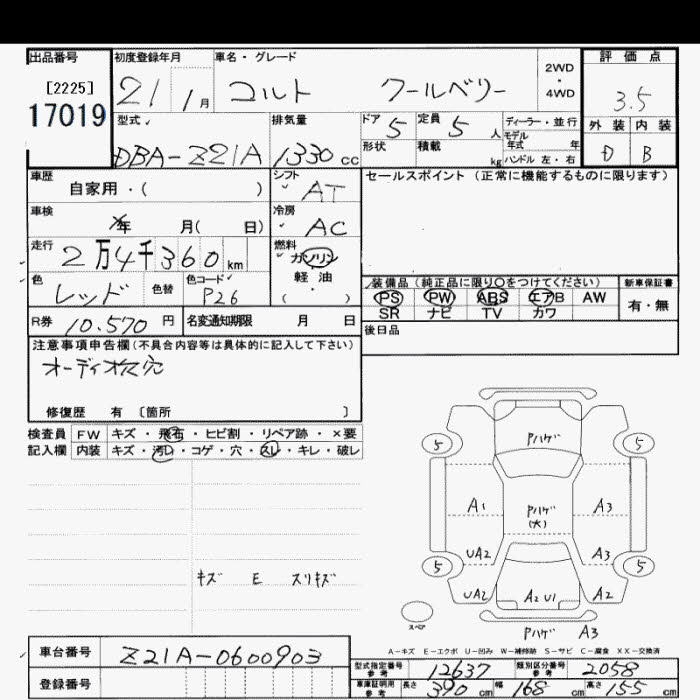 出品番号 初度登録年月 車名・グレード 2WD・4WD 評価点
[2225] 21 1月 コルト クールベリー 3.5
17019
型式 排気量 ドア 5 定員 5人 ディーラー・並行 外装 内装
DBA-Z21A 1330cc 形状 積載 kg モデル年式 年 D B
ハンドル 左・右
車歴 自家用・( ) シフト AT セールスポイント(正常に機能するものに限ります)
車検 年 月( 日) 冷房 AC
走行 2万4千360km 燃料 ガソリン
軽・油
( ・ )
色 レッド 色替 色コード P26 装備品(純正品に限り○をつけてください) 新車保証書
PS PW ABS エアB AW 有・無
SR ナビ TV カワ
R券 10.570円 名変通知期限 月 日 後日品
注意事項申告欄(不具合内容等は具体的に記入して下さい)
オーディオ 穴
修復歴 有 〔箇所 〕
検査員 FW キズ・飛石・ヒビ割・リペア跡・×要
記入欄 内装 キズ・汚レ・コゲ・穴・スレ・キレ・破レ
Pハゲ
5 5
A1 Pハゲ(大) A3
UA2 A3
5 5
UA2 A2 U1 A2
Pハゲ A3
スペア
キズ E スリキズ
A-キズ E-エクボ U-凹み W-補修跡 S-サビ C-腐食 XX-交換済
車台番号 Z21A-0600903
登録番号
型式指定番号 参考 12637 類別区分番号 参考 2058
車庫証明用 参考 長さ 390cm 幅 168cm 高さ 155cm